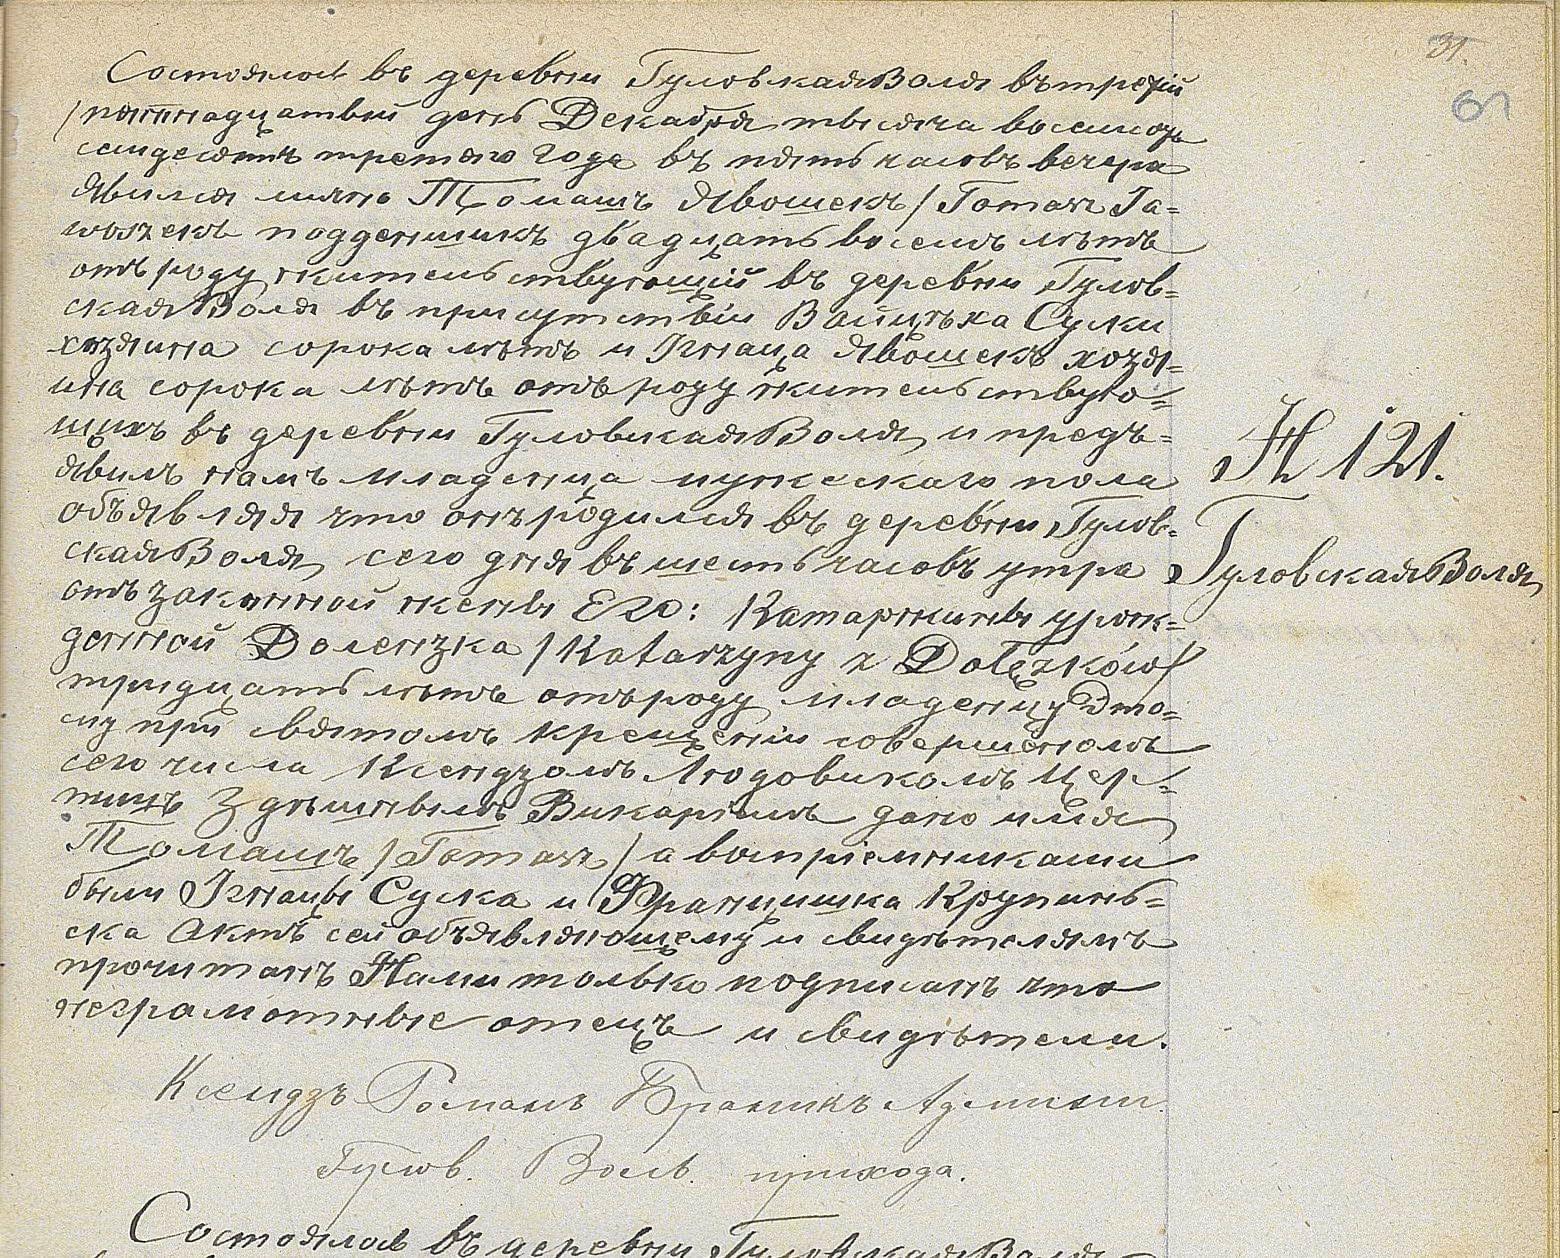 31.
61
Состоялось въ деревни ГуловскаяВоля въ третій
/пятннадцатый день Декабря тысяча восемсотъ
семдесятъ третяго Года въ пять часовъ вечера
Явился лично Томашъ Явошекъ / Tomasz Ja=
woszekъ подденщикъ двадцать восемь лѣтъ
отъ роду жительствующій въ деревни Гулов=
скаяВоля въ присутствіи Войцѣха Суски
хозяина сорока лѣтъ и Игнаца Явошекъ хозя=
ина сорока лѣтъ отъ роду жительствую=
щихъ въ деревни ГуловскаяВоля и предъ=
явилъ намъ младенца мужескаго пола
объявляя что онъ родился въ деревни Гулов=
скаяВоля сего дня въ шесть часовъ утра
отъ законной жены Его: Катаржины урож=
денной Долензка / Katarzyny z Dołęzków/
тридцать лѣтъ отъ роду младенцу Это=
му при святомъ крещеніи совершеномъ
сего числа Ксендзомъ Людовикомъ Цер=
Здѣшнымъ Викаріемъ дано имя
Томашъ / Tomasz / а воспріемниками
были Игнацы Суска и Францишка Крупинь=
ска Актъ сей объявляющему и свидѣтелямъ
прочитанъ Нами только подписанъ что
неграмотные отецъ и свидѣтели.
Ксендзъ Романъ Браникъ Админи.
Гулов. Воль. прихода.
N 121.
ГуловскаяВоля
Состоялось въ деревни ГуловскаяВоля